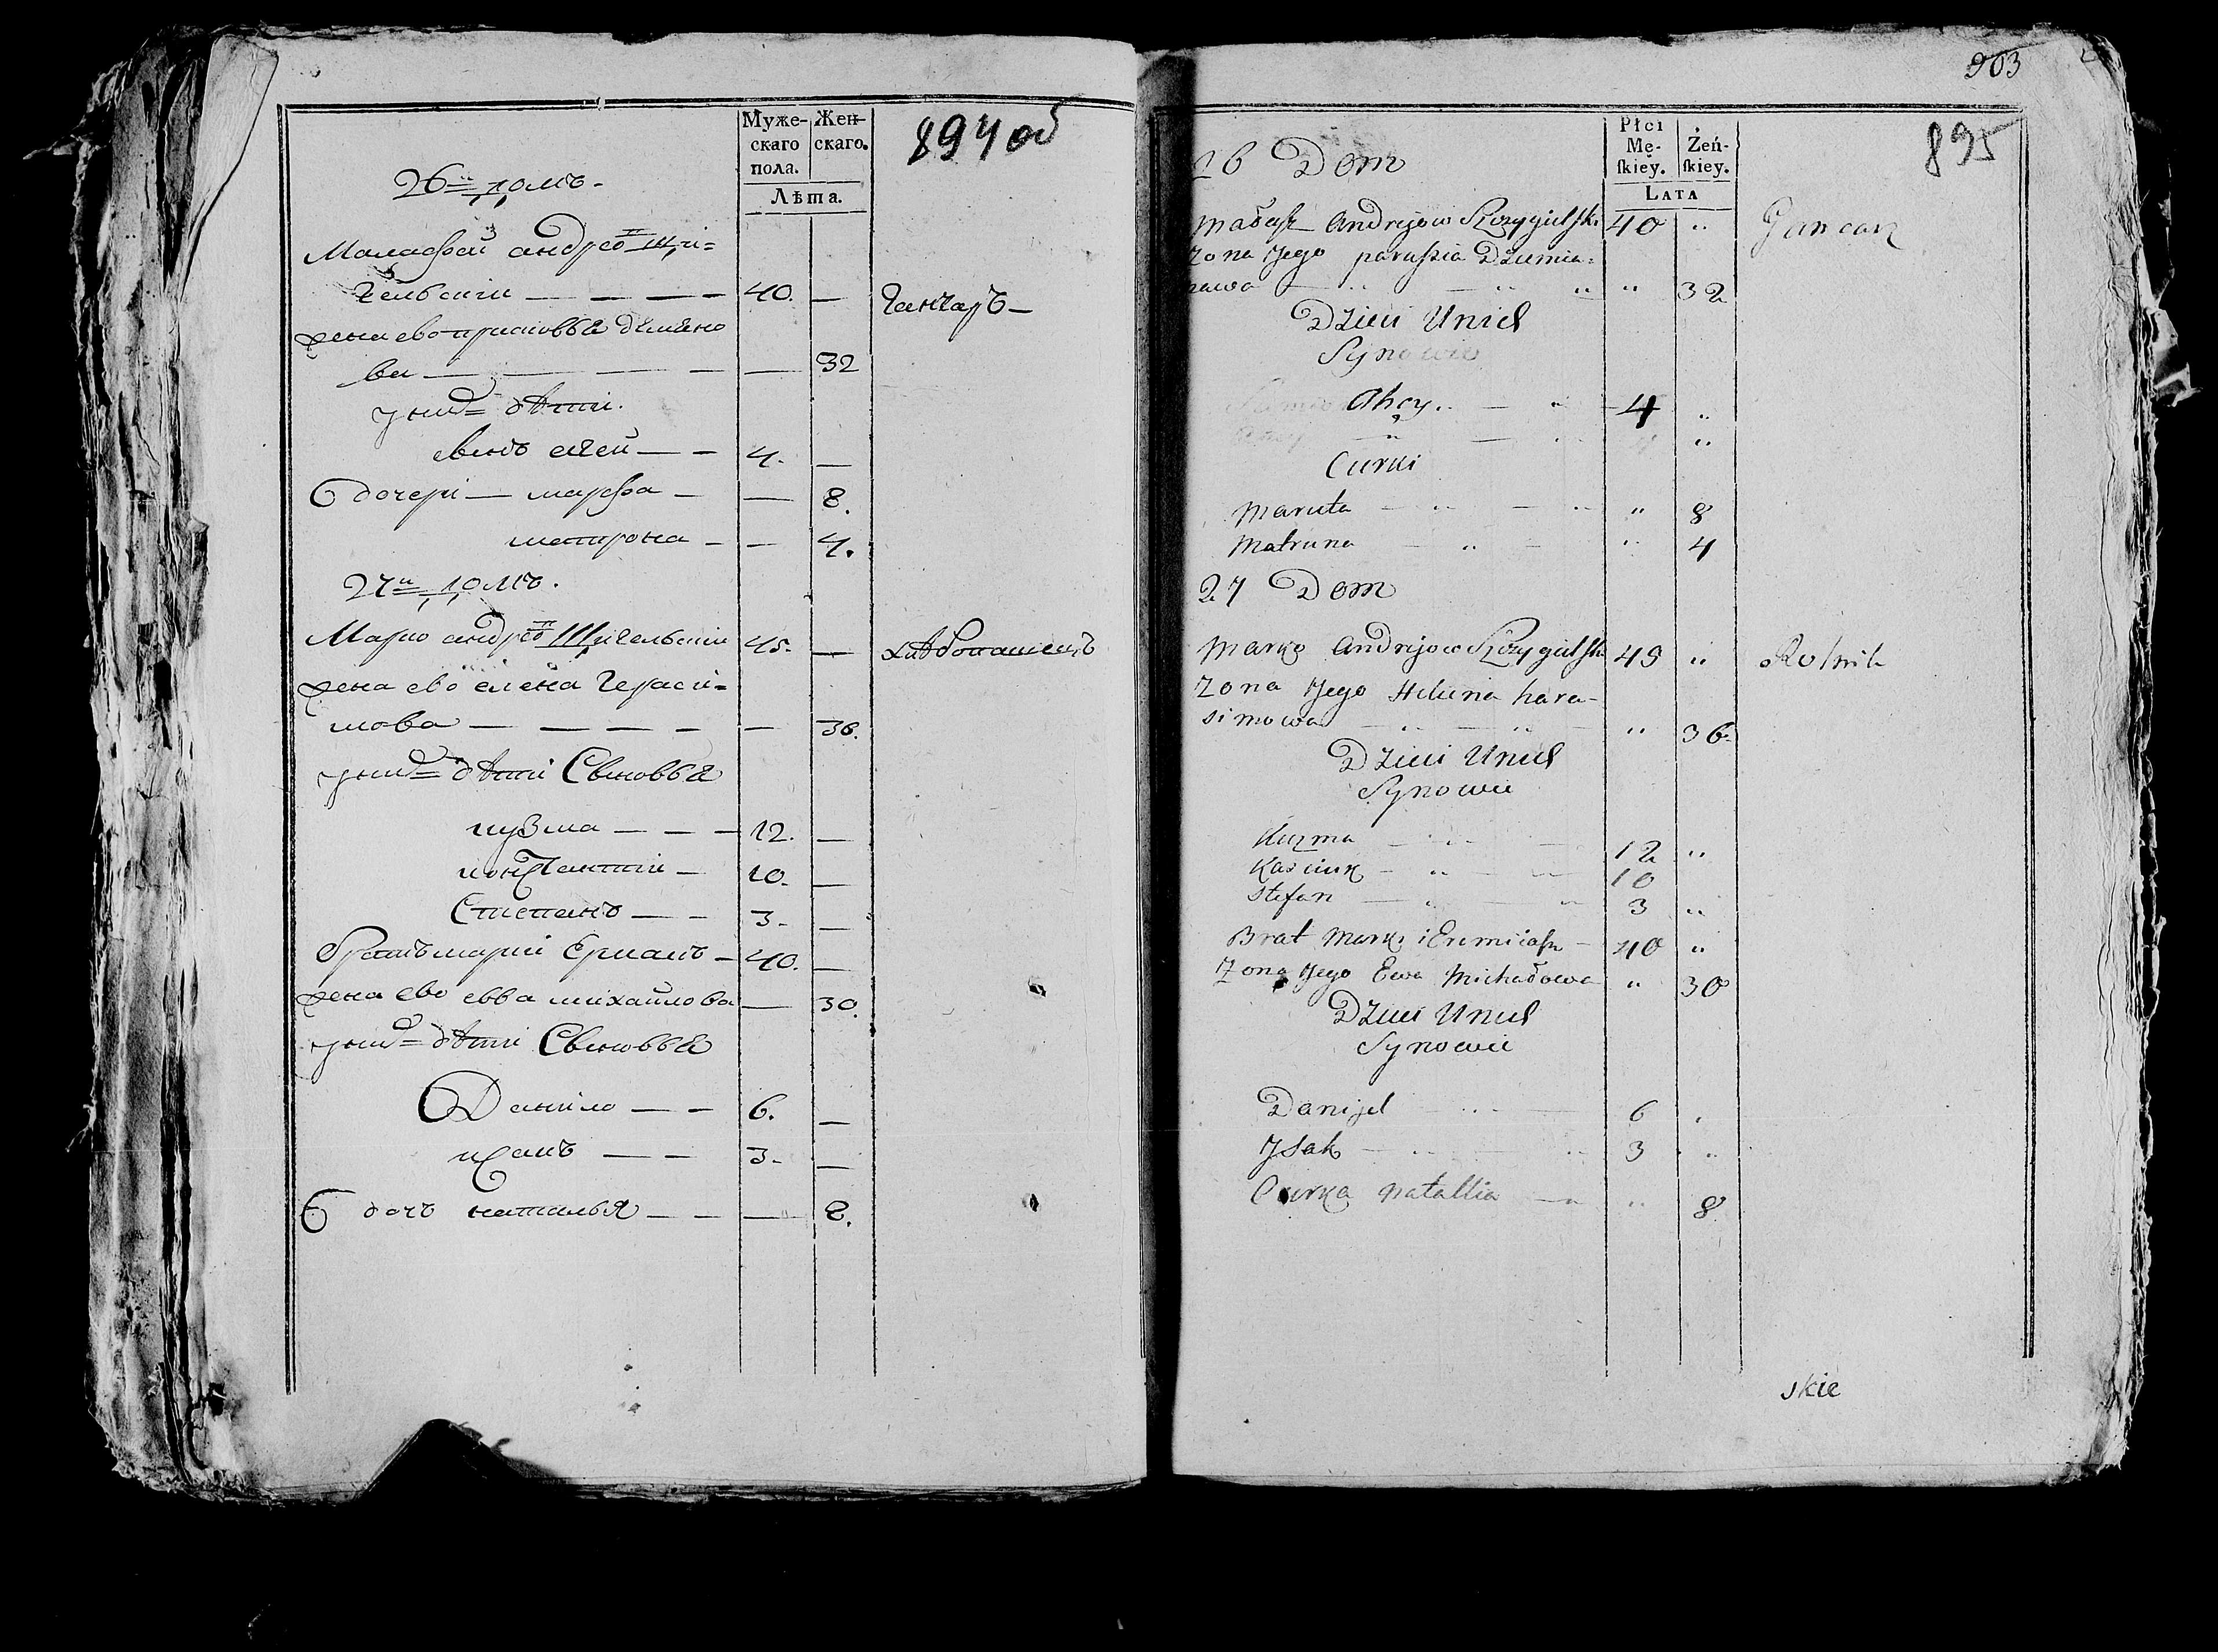 Муже-
скаго
пола.
Жен-
скаго.
Лѣта.
894 об
26й домъ.
Малафей андреевъ Щи-
гельскии — — — — 40. —
Ганчаръ —
жена ево прасковья демяно
ва — — — — — 32
у нихъ дѣти.
сынъ агей — — 4. —
дочери — марфа — — 8.
матрона — — 4.
27й домъ.
Марко андреевъ Щигельскии 45. —
хлѣбопашецъ
жена ево елена Гераси-
мова — — — — — 36.
у нихъ дѣти Сыновья
кузма — — — 12. —
10. —
Степанъ — — 3. —
братъ марки 40. —
жена ево евва михайлова — 30.
у нихъ дѣти Сыновья
Данило — — 6. —
исакъ — — 3. —
дочь наталья — — — 8.
903
895
Płci
Mę-
skiey.
Żeń-
skiey.
LATA
26 Dom
Małasz Andrejow Szczygielski 40 "
Gancarz
Zona Jego paraszia Dziemia=
nawa 32
Dzieci Unich
Synowie
Ahey 4 "
Curki
Maruta " 8
Matruna " 4
27 Dom
Marko Andrejow Szczygielski 45 "
Rolnik
Zona Jego Helena hara-
simowa " 36
Dzieci Unich
Synowie
Kuzma 12 "
10
Stefan 3 "
Brat Marki 40 "
Zona Jego Ewa Michałowa " 30
Dzieci Unich
Synowie
Danijel 6
Jsak 3 "
Curka natallia " 8
skie